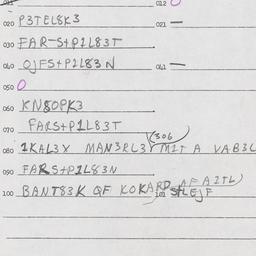 011 012
020 P3TEL8K3 021 —
030 FAR-S+P1L83T
040 OJFS+P1L83N 041 —
050
060 KN8OPK3
070 FARS+P1L83T
(306
080 1KAL3X MAN3RL3Y MIT A VAB3L
090 FARS+P1L83N
100 BANT83K QF KOKARD AFAITL)
101 STLEJF